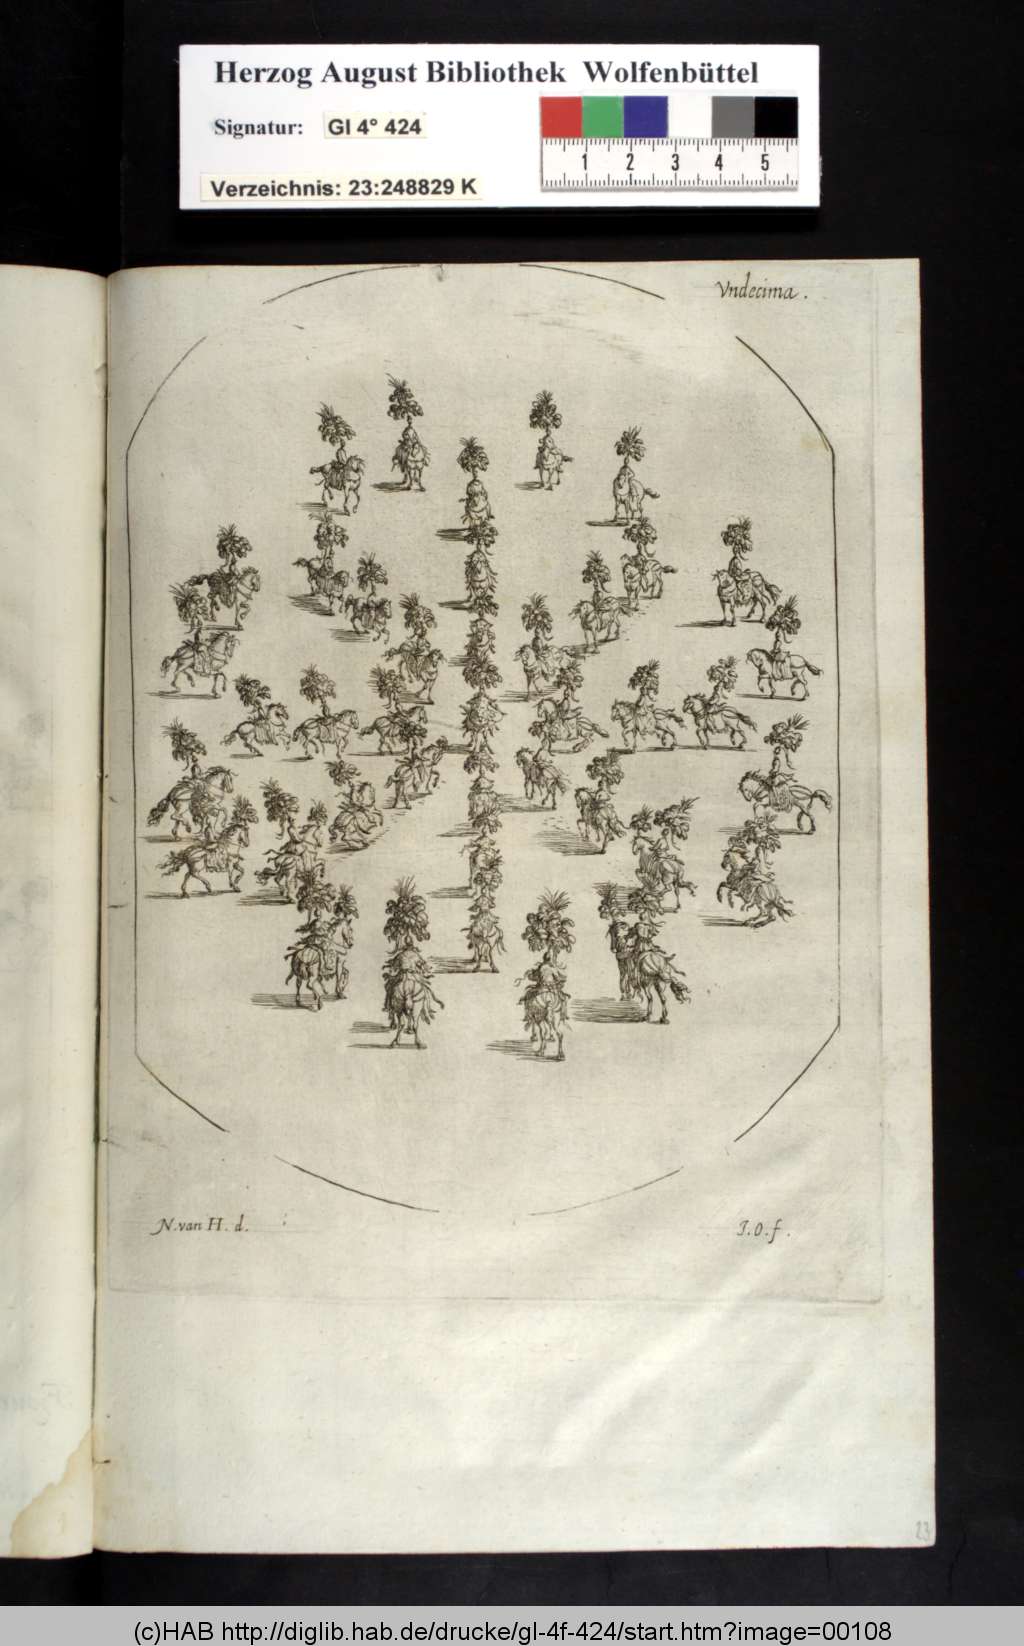 Herzog August Bibliothek Wolfenbüttel
Signatur: Gl 4° 424
Verzeichnis: 23:248829 K
1 2 3 4 5
Vndecima.
N. van H. d.
J. O. f.
23
(c)HAB http://diglib.hab.de/drucke/gl-4f-424/start.htm?image=00108